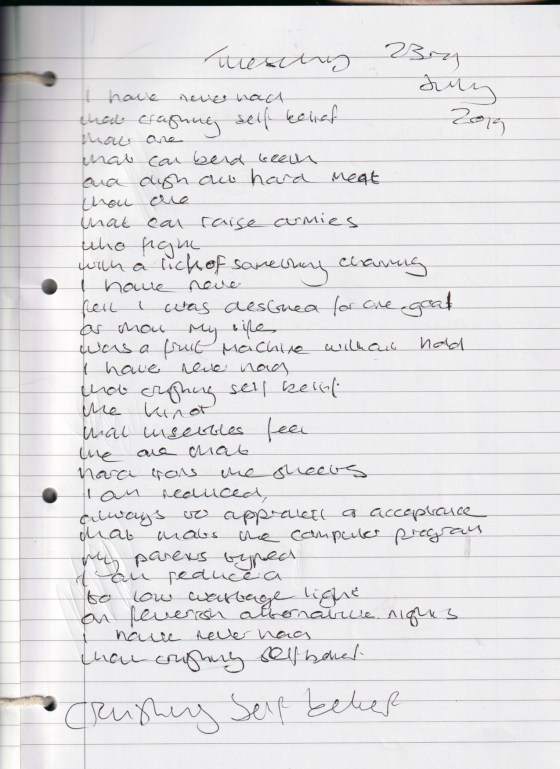 Tuesday 23rd
July
2019
I have never had
that crushing self belief
that one
that can bend
and dish out hard meat
that one
that can raise armies
who fight
with a lick of something charming
I have never
felt I was destined for one goal
or that my life
was a fruit machine without hold
I have never had
that crushing self belief
the kind of
that feel
the one that
hard the sheets
I am reduced,
always to a acceptance
that makes the computer program
my parents typed
I am reduced
to low wattage light
on feverish alternative nights
I have never had
that crushing self belief
Crushing Self belief